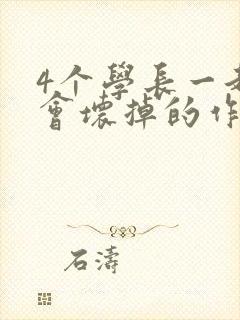 4个學長一
會壞掉的作
石濤